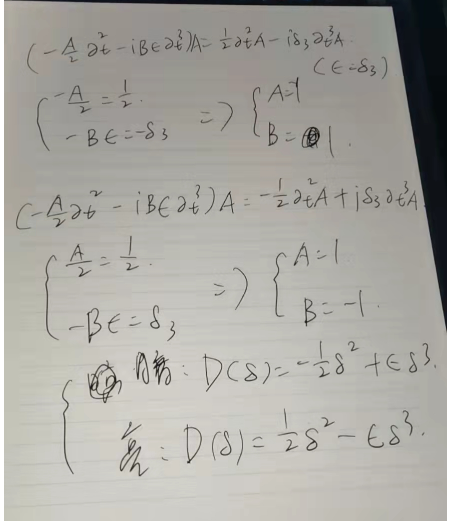 (-A/2 ∂t² - iBϵ∂t³)A = 1/2 ∂t²A - iδ₃∂t³A.
(ϵ=δ₃)
{ -A/2 = 1/2. => { A=1
-Bϵ=-δ₃ B= 1.
(-A/2 ∂t² - iBϵ∂t³)A = -1/2 ∂t²A + iδ₃∂t³A.
{ A/2 = 1/2. => { A=1
-Bϵ=δ₃ B=-1.
{ 暗: D(δ) = -1/2 δ² + ϵδ³.
亮: D(δ) = 1/2 δ² - ϵδ³.